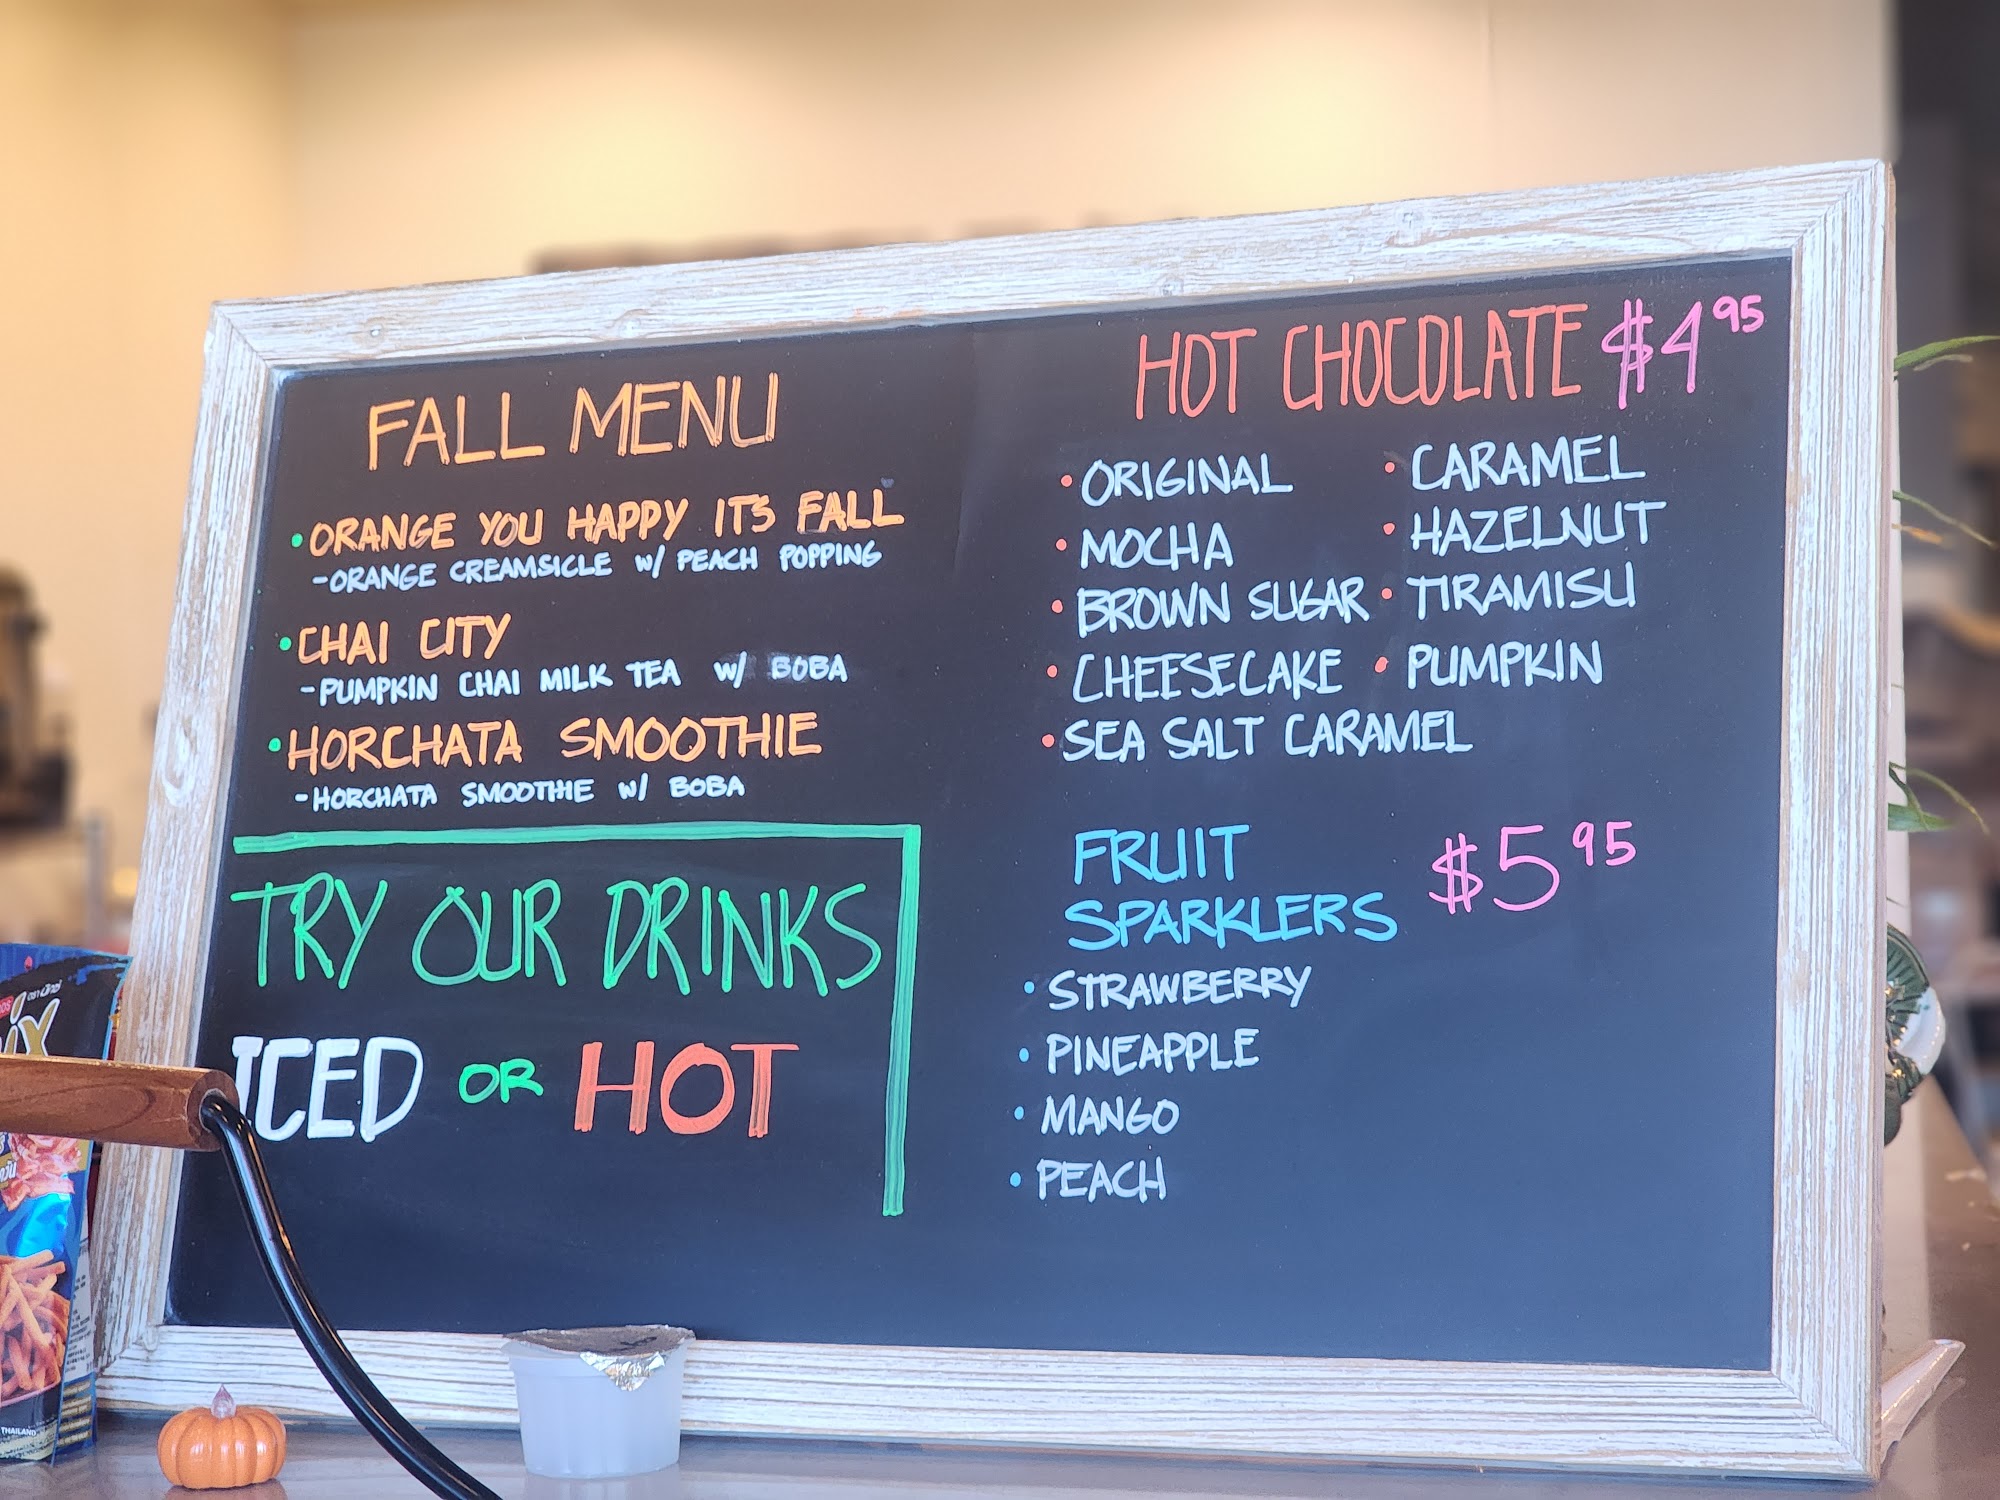 FALL MENU
• ORANGE YOU HAPPY IT'S FALL
- ORANGE CREAMSICLE W/ PEACH POPPING
• CHAI CITY
- PUMPKIN CHAI MILK TEA W/ BOBA
• HORCHATA SMOOTHIE
- HORCHATA SMOOTHIE W/ BOBA
TRY OUR DRINKS
ICED OR HOT
HOT CHOCOLATE $4.95
• ORIGINAL
• MOCHA
• BROWN SUGAR
• CHEESECAKE
• SEA SALT CARAMEL
• CARAMEL
• HAZELNUT
• TIRAMISU
• PUMPKIN
FRUIT
SPARKLERS $5.95
• STRAWBERRY
• PINEAPPLE
• MANGO
• PEACH
THAILAND